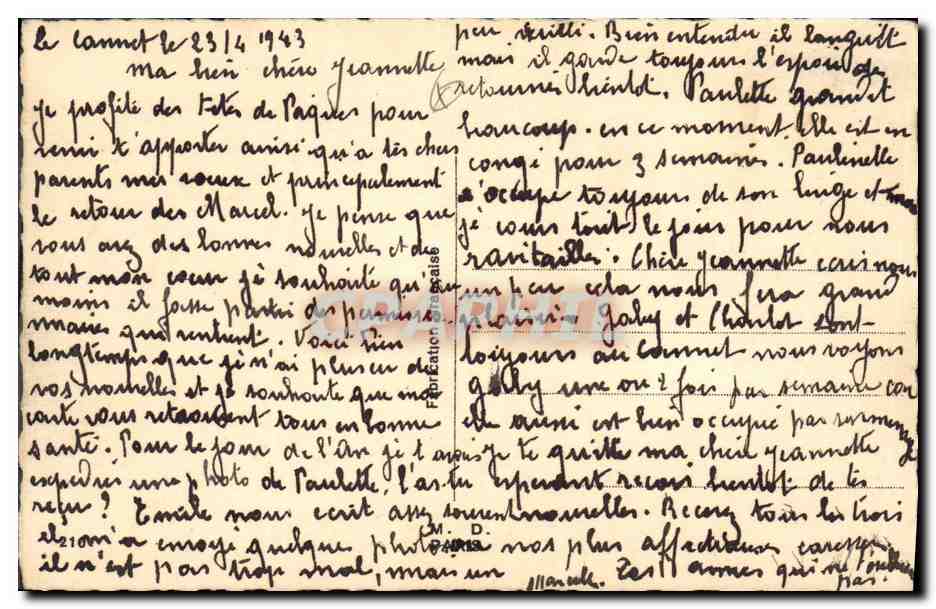 Le Cannet le 23/4 1943
Ma bien chère Jeannette
Je profite des fetes de Paques pour
venir t'apporter ainsi qu'a tes chers
parents mes voeux et principalement
le retour des Marcel. Je pense que
vous avez des bonnes nouvelles et de
tout mon coeur je souhaite qu'au
moins il fasse parti des premiers
qui rentrent. Voici bien
longtemps que je n'ai plus eu de
vos nouvelles et je souhaite que ma
carte vous retrouvent tous en bonne
santé. Pour le jour de l'An je t'avais
expedier une photo de Paulette, l'as-tu
reçu? Emile nous ecrit assez souvent
il m'a envoyé quelques photos
il n'est pas trop mal, mais un
peu vieilli. Bien entendu il languit
mais il garde toujours l'espoir de
retourner bientot. Paulette grandit
beaucoup. en ce moment elle est en
congé pour 3 semaines. Paulinette
s'occupe toujours de son linge et moi
je cours tout le jour pour nous
ravitailler. Chère Jeannette ecris nous
un peu cela nous fera grand
plaisir. Gaby et Charlot sont
toujours au Cannet nous voyons
Gaby une ou 2 fois par semaine car
elle aussi est bien occupée par son menage
Je te quitte ma chère Jeannette
esperant recevoir bientot de tes
nouvelles. Recevez tous les trois
nos plus affectueuses caresses
Tes amies qui ne t'oublient
pas.
Marcelle
Fabrication Française
M. D.
PARIS
210
CPARAMA